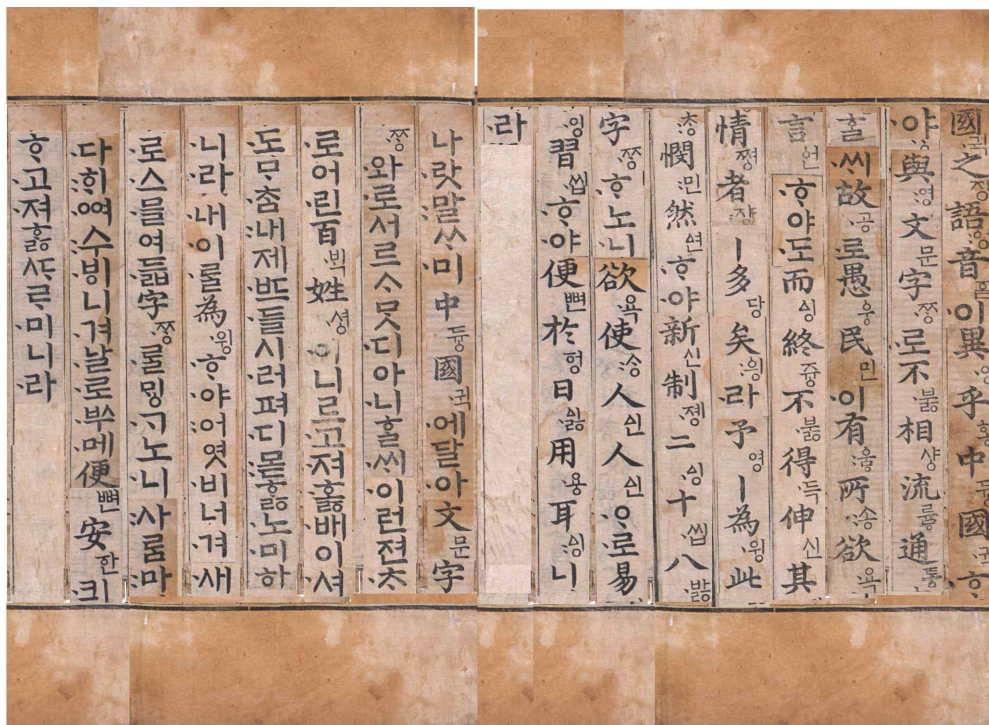 國귁之징語ᅌᅥᆼ音ᅙᅳᆷ이異잉乎ᅘᅩᆼ中듀ᇰ國귁ᄒᆞ
야與영文문字ᄍᆞᆼ로不부ᇙ相샤ᇰ流류ᇢ通토ᇰ
ᄒᆞᆯᄊᆡ故공로愚ᅌᅮᆼ民민이有우ᇢ所송欲욕
言언ᄒᆞ야도而ᅀᅵᆼ終쥬ᇰ不부ᇙ得득伸신其
情쪄ᇰ者쟝ㅣ多당矣ᅌᅴᆼ라予영ㅣ為윙此
ᄎᆞᆼ憫민然ᅀᅧᆫᄒᆞ야新신制졩二ᅀᅵᆼ十씹八바ᇙ
字ᄍᆞᆼᄒᆞ노니欲욕使ᄉᆞᆼ人ᅀᅵᆫ人ᅀᅵᆫᄋᆞ로易
잉習씹ᄒᆞ야便뼌於ᅙᅥᆼ日ᅀᅵᇙ用요ᇰ耳ᅀᅵᆼ니
라
나랏말ᄊᆞ미中듀ᇰ國귁에달아文문字
ᄍᆞᆼ와로서르ᄉᆞᄆᆞᆺ디아니ᄒᆞᆯᄊᆡ이런젼ᄎᆞ
로어린百ᄇᆡᆨ姓셔ᇰ이니르고져호ᇙ배이셔
도ᄆᆞᄎᆞᆷ내제ᄠᅳ들시러펴디몯ᄒᆞᇙ노미하
니라내이ᄅᆞᆯ為윙ᄒᆞ야어엿비너겨새
로스믈여듧字ᄍᆞᆼᄅᆞᆯᄆᆡᇰᄀᆞ노니사ᄅᆞᆷ마
다ᄒᆡᅇᅧ수ᄫᅵ니겨날로ᄡᅮ메便뼌安ᅙᅡᆫ킈
ᄒᆞ고져ᄒᆞᇙᄯᆞᄅᆞ미니라